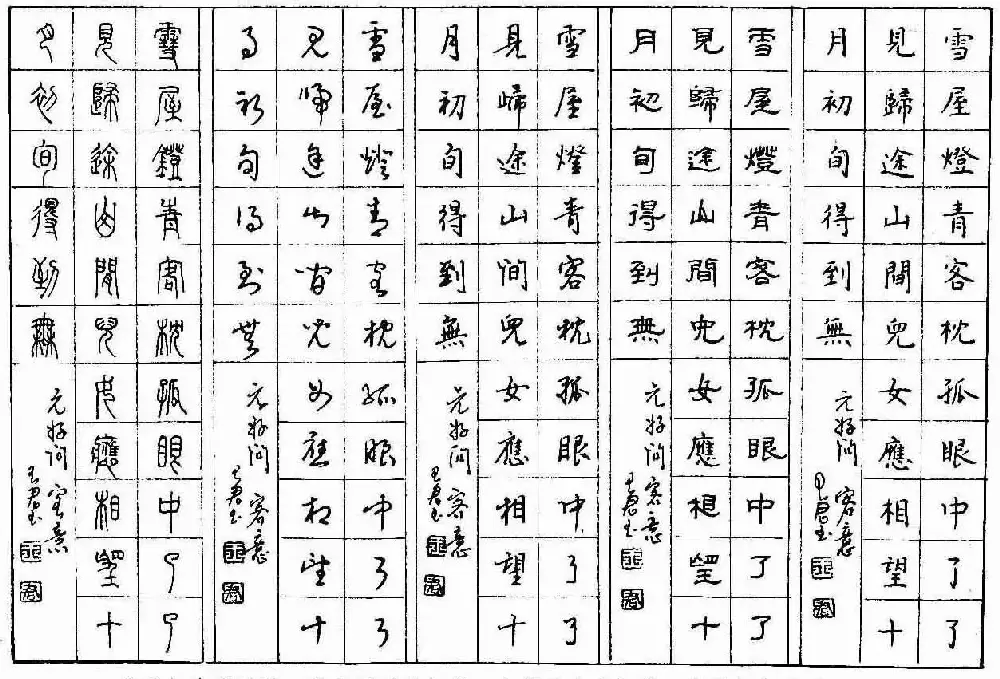 雪屋燈青客枕孤眼中了了
見歸途山間兒女應相望十
月初旬得到無
元好問 客意
雪屋燈青客枕孤眼中了了
見歸途山間兒女應相望十
月初旬得到無
元好問 客意
雪屋燈青客枕孤眼中了了
見歸途山間兒女應相望十
月初旬得到無
元好問 客意
雪屋燈青客枕孤眼中了了
見歸途山間兒女應相望十
月初旬得到無
元好問 客意
雪屋鐙青客枕孤眼中了了
見歸途山間兒女應相望十
月初旬得到無
元好問 客意